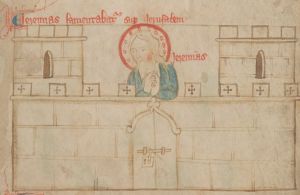 Jeremias lamentabitur sup Jerusalem
Jeremias